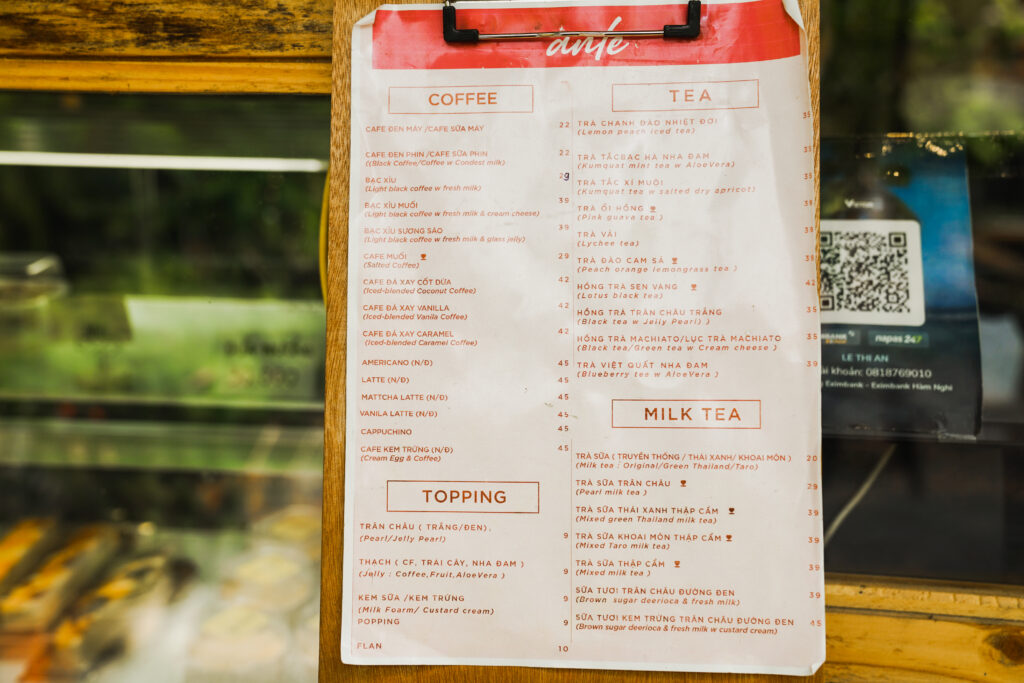 ánfé
COFFEE
CAFE ĐEN MÁY /CAFE SỮA MÁY 22
CAFE ĐEN PHIN /CAFE SỮA PHIN 22
((Black Coffee/Coffee w Condest milk)
BẠC XỈU 29
(Light black coffee w fresh milk)
BẠC XỈU MUỐI 39
(Light black coffee w fresh milk & cream cheese)
BẠC XỈU SƯƠNG SÁO 39
(Light black coffee w fresh milk & glass jelly)
CAFE MUỐI 29
(Salted Coffee)
CAFE ĐÁ XAY CỐT DỪA 42
(Iced-blended Coconut Coffee)
CAFE ĐÁ XAY VANILLA 42
(Iced-blended Vanila Coffee)
CAFE ĐÁ XAY CARAMEL 42
(Iced-blended Caramel Coffee)
AMERICANO (N/Đ) 45
LATTE (N/Đ) 45
MATTCHA LATTE (N/Đ) 45
VANILA LATTE (N/Đ) 45
CAPPUCHINO 45
CAFE KEM TRỨNG (N/Đ) 45
(Cream Egg & Coffee)
TOPPING
TRÂN CHÂU ( TRẮNG/ĐEN). 9
(Pearl/Jelly Pearl)
THẠCH ( CF, TRÁI CÂY, NHA ĐAM ) 9
(Jelly : Coffee,Fruit,AloeVera )
KEM SỮA /KEM TRỨNG 9
(Milk Foarm/ Custard cream)
POPPING 9
FLAN 10
TEA
TRÀ CHANH ĐÀO NHIỆT ĐỚI 35
(Lemon peach iced tea)
TRÀ TẮCBẠC HÀ NHA ĐAM
(Kumquat mint tea w AloeVera)
TRÀ TẮC XÍ MUỘI
(Kumquat tea w salted dry apricot)
TRÀ ỔI HỒNG
(Pink guava tea )
TRÀ VẢI
(Lychee tea)
TRÀ ĐÀO CAM SẢ
(Peach orange lemongrass tea )
HỒNG TRÀ SEN VÀNG 42
(Lotus black tea)
HỒNG TRÀ TRÂN CHÂU TRẮNG 35
(Black tea w Jelly Pearl) )
HỒNG TRÀ MACHIATO/LỤC TRÀ MACHIATO
(Black tea/Green tea w Cream cheese )
TRÀ VIỆT QUẤT NHA ĐAM 39
(Blueberry tea w AloeVera )
MILK TEA
TRÀ SỮA ( TRUYỀN THỐNG / THÁI XANH/ KHOAI MÔN ) 20
(Milk tea : Original/Green Thailand/Taro)
TRÀ SỮA TRÂN CHÂU 29
(Pearl milk tea )
TRÀ SỮA THÁI XANH THẬP CẨM 39
(Mixed green Thailand milk tea)
TRÀ SỮA KHOAI MÔN THẬP CẨM 39
(Mixed Taro milk tea)
TRÀ SỮA THẬP CẨM 39
(Mixed milk tea )
SỮA TƯƠI TRÂN CHÂU ĐƯỜNG ĐEN 39
(Brown sugar deerioca & fresh milk)
SỮA TƯƠI KEM TRỨNG TRÂN CHÂU ĐƯỜNG ĐEN 45
(Brown sugar deerioca & fresh milk w custard cream)
napas 247
LE THI AN
khoản: 0818769010
Eximbank - Eximbank Hàm Nghi